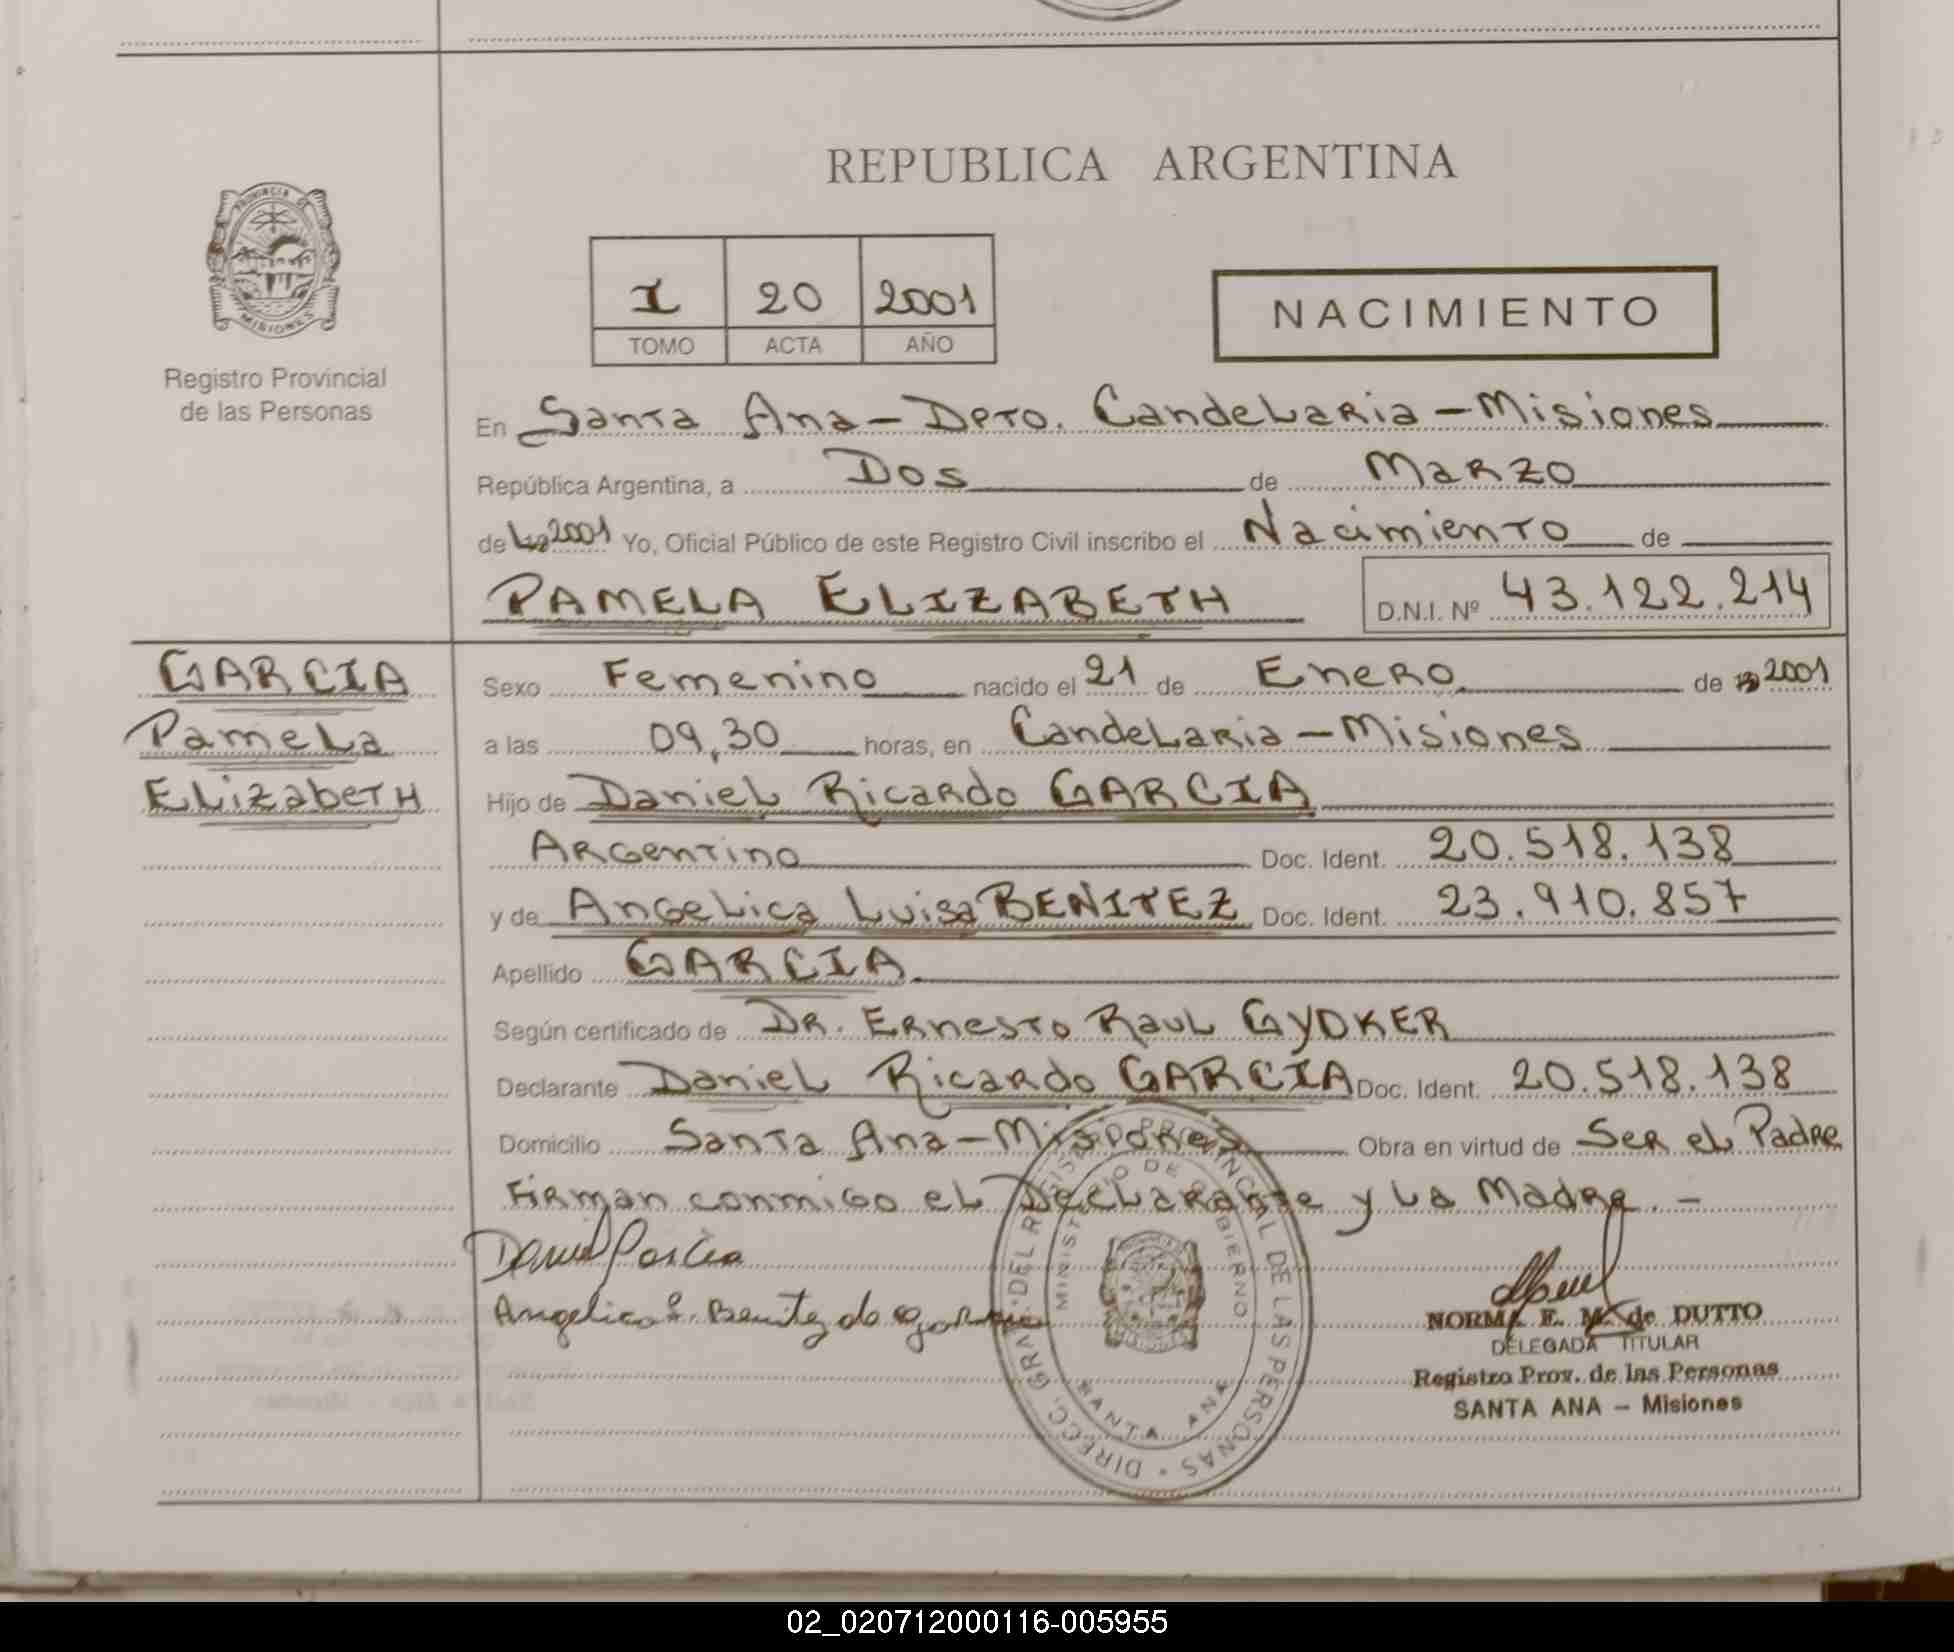 REPUBLICA ARGENTINA
PROVINCIA DE
MISIONES
Registro Provincial
de las Personas
I 20 2001
TOMO ACTA AÑO
NACIMIENTO
En Santa Ana - Dpto. Candelaria - Misiones
República Argentina, a Dos de Marzo
de 2001 Yo, Oficial Público de este Registro Civil inscribo el Nacimiento de
PAMELA ELIZABETH D.N.I. Nº 43.122.214
GARCIA
Pamela
Elizabeth
Sexo Femenino nacido el 21 de Enero de 2001
a las 09,30 horas, en Candelaria - Misiones
Hijo de Daniel Ricardo GARCIA
Argentino Doc. Ident. 20.518.138
y de Angelica Luisa BENITEZ Doc. Ident. 23.910.857
Apellido GARCIA
Según certificado de Dr. Ernesto Raul GYDKER
Declarante Daniel Ricardo GARCIA Doc. Ident. 20.518.138
Domicilio Santa Ana - Misiones Obra en virtud de Ser el Padre
Firman conmigo el Declarante y la Madre. -
Daniel Garcia
Angelica L. Benitez de Garcia
DIRECC. GRAL. DEL REGISTRO PROVINCIAL DE LAS PERSONAS
MINISTERIO DE GOBIERNO
SANTA ANA
NORMA E. M. de DUTTO
DELEGADA TITULAR
Registro Prov. de las Personas
SANTA ANA - Misiones
02_020712000116-005955